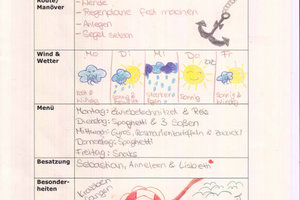 Route/
Manöver
- Wende
- Regenplane fest machen
- Anlegen
- Segel setzen
Wind &
Wetter
Mo Di Mi Do Fr
Kalt &
Windig
Sonnig &
Starker
Regen
Sonnig
Sonnig &
Menü
Montag: Zwiebelschnitzel & Reis
Dienstag: Spaghetti & 3 Soßen
Mittwoch: Gyros, Rosmarienkartoffeln & Zaziki!
Donnerstag: Spaghetti!
Freitag: Snacks
Besatzung
Sebastian, Anneleen & Lisbeth
Besonder-
heiten
Krabben
fangen